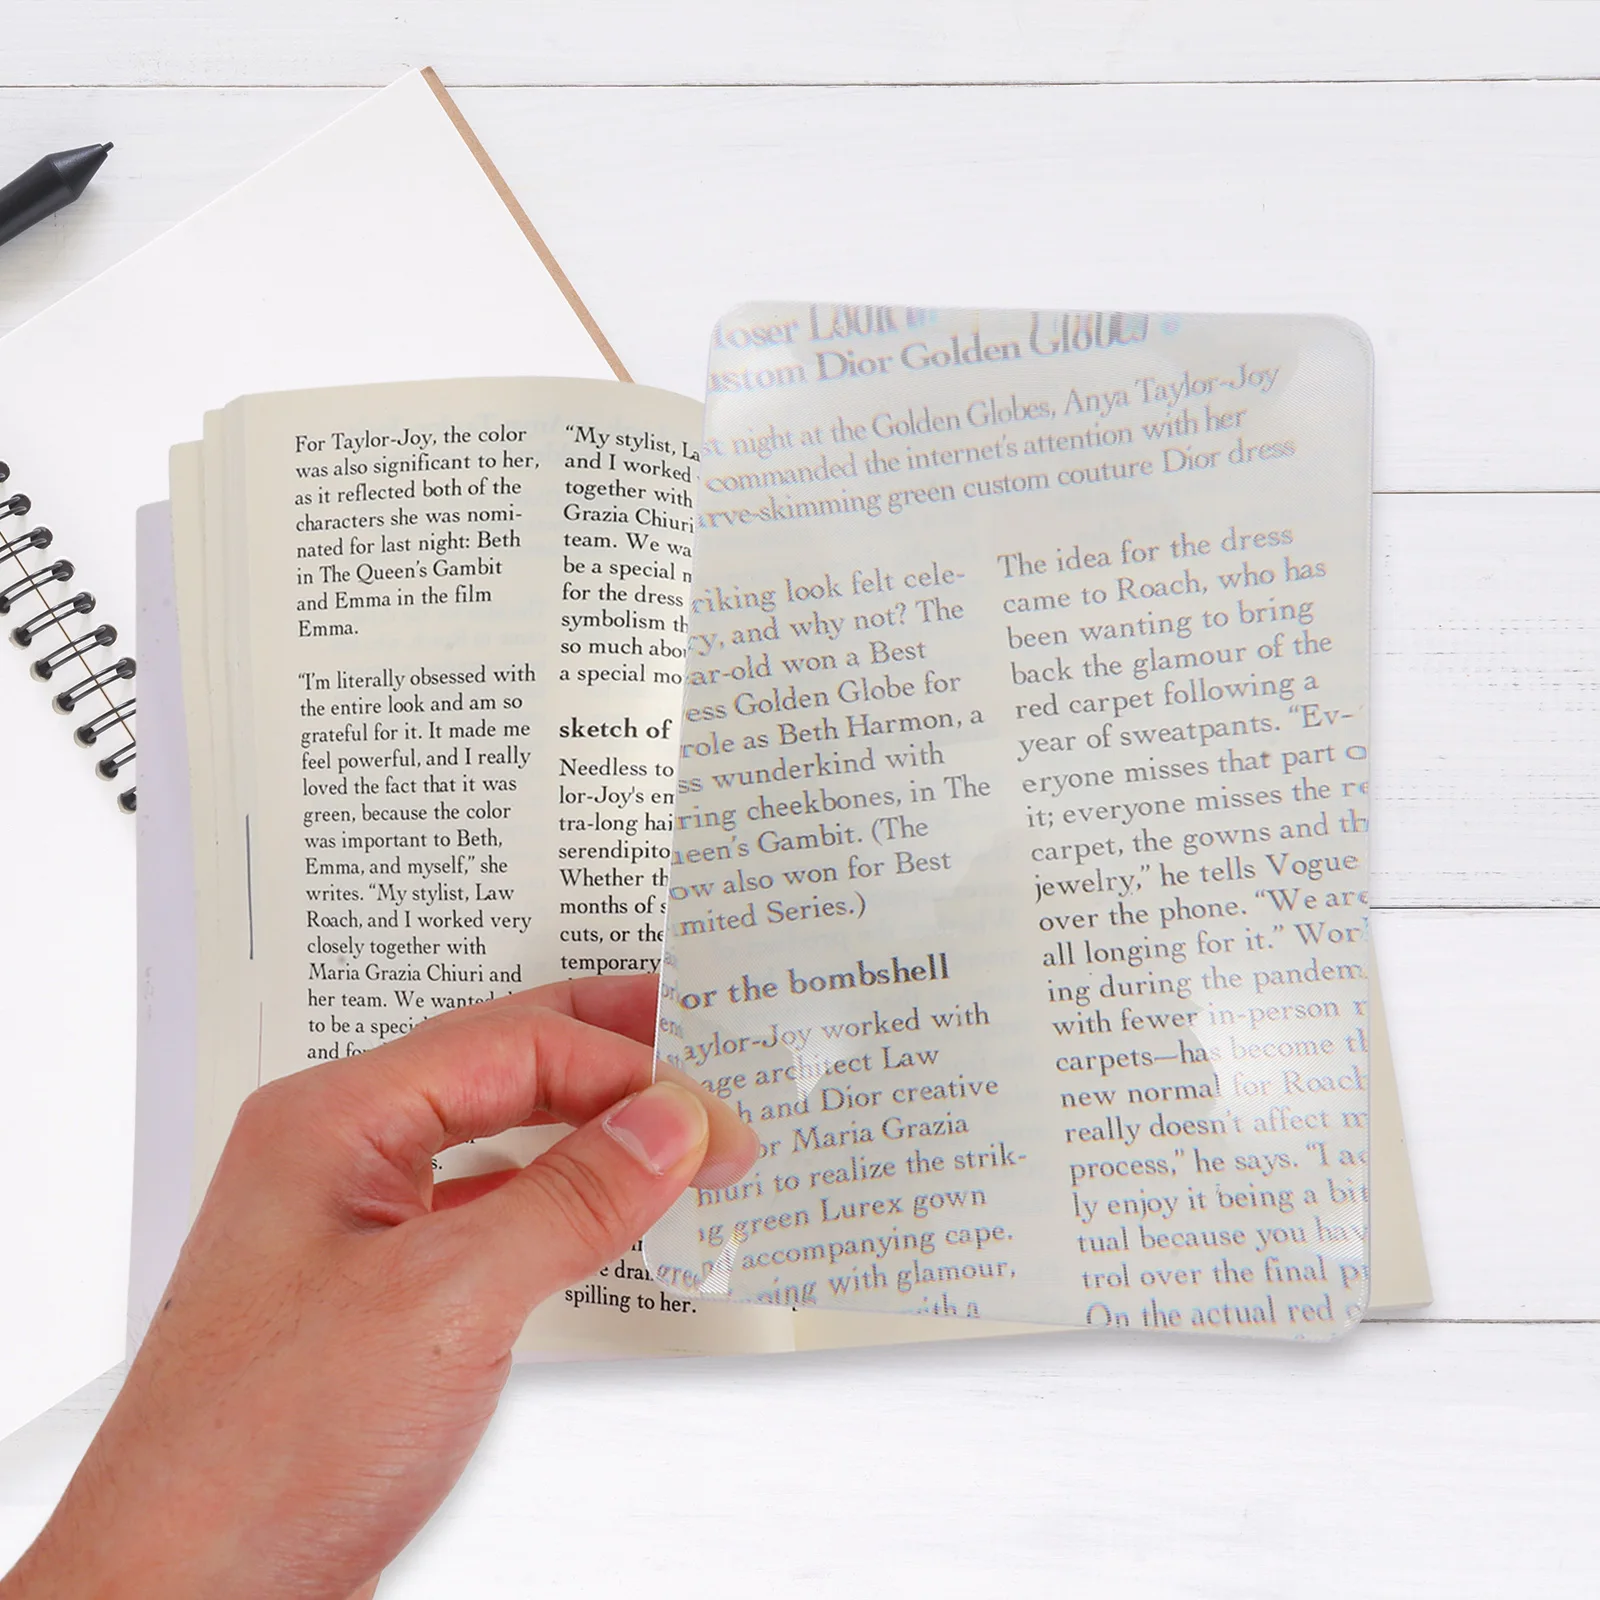 For Taylor-Joy, the color
was also significant to her,
as it reflected both of the
characters she was nomi-
nated for last night: Beth
in The Queen's Gambit
and Emma in the film
Emma.
“I'm literally obsessed with
the entire look and am so
grateful for it. It made me
feel powerful, and I really
loved the fact that it was
green, because the color
was important to Beth,
Emma, and myself,” she
writes. “My stylist, Law
Roach, and I worked very
closely together with
Maria Grazia Chiuri and
her team. We wanted
to be a speci
and fo
s.
“My stylist, La
and I worked
together with
Grazia Chiuri
team. We wa
be a special m
for the dress
symbolism th
so much abou
a special mo
sketch of
Needless to
lor-Joy's en
tra-long hai
serendipito
Whether th
months of s
cuts, or the
temporary
e dra
spilling to her.
loser Look
ustom Dior Golden Globes
st night at the Golden Globes, Anya Taylor-Joy
commanded the internet's attention with her
urve-skimming green custom couture Dior dress
riking look felt cele-
ry, and why not? The
ar-old won a Best
ess Golden Globe for
role as Beth Harmon, a
ss wunderkind with
ring cheekbones, in The
ueen's Gambit. (The
ow also won for Best
mited Series.)
or the bombshell
aylor-Joy worked with
age architect Law
h and Dior creative
or Maria Grazia
hiuri to realize the strik-
ng green Lurex gown
accompanying cape.
ning with glamour,
with a
The idea for the dress
came to Roach, who has
been wanting to bring
back the glamour of the
red carpet following a
year of sweatpants. “Ev-
eryone misses that part o
it; everyone misses the re
carpet, the gowns and th
jewelry,” he tells Vogue
over the phone. “We are
all longing for it.” Wor
ing during the pandem
with fewer in-person r
carpets—has become th
new normal for Roach
really doesn't affect m
process,” he says. “I ac
ly enjoy it being a bit
tual because you hav
trol over the final pr
On the actual red c